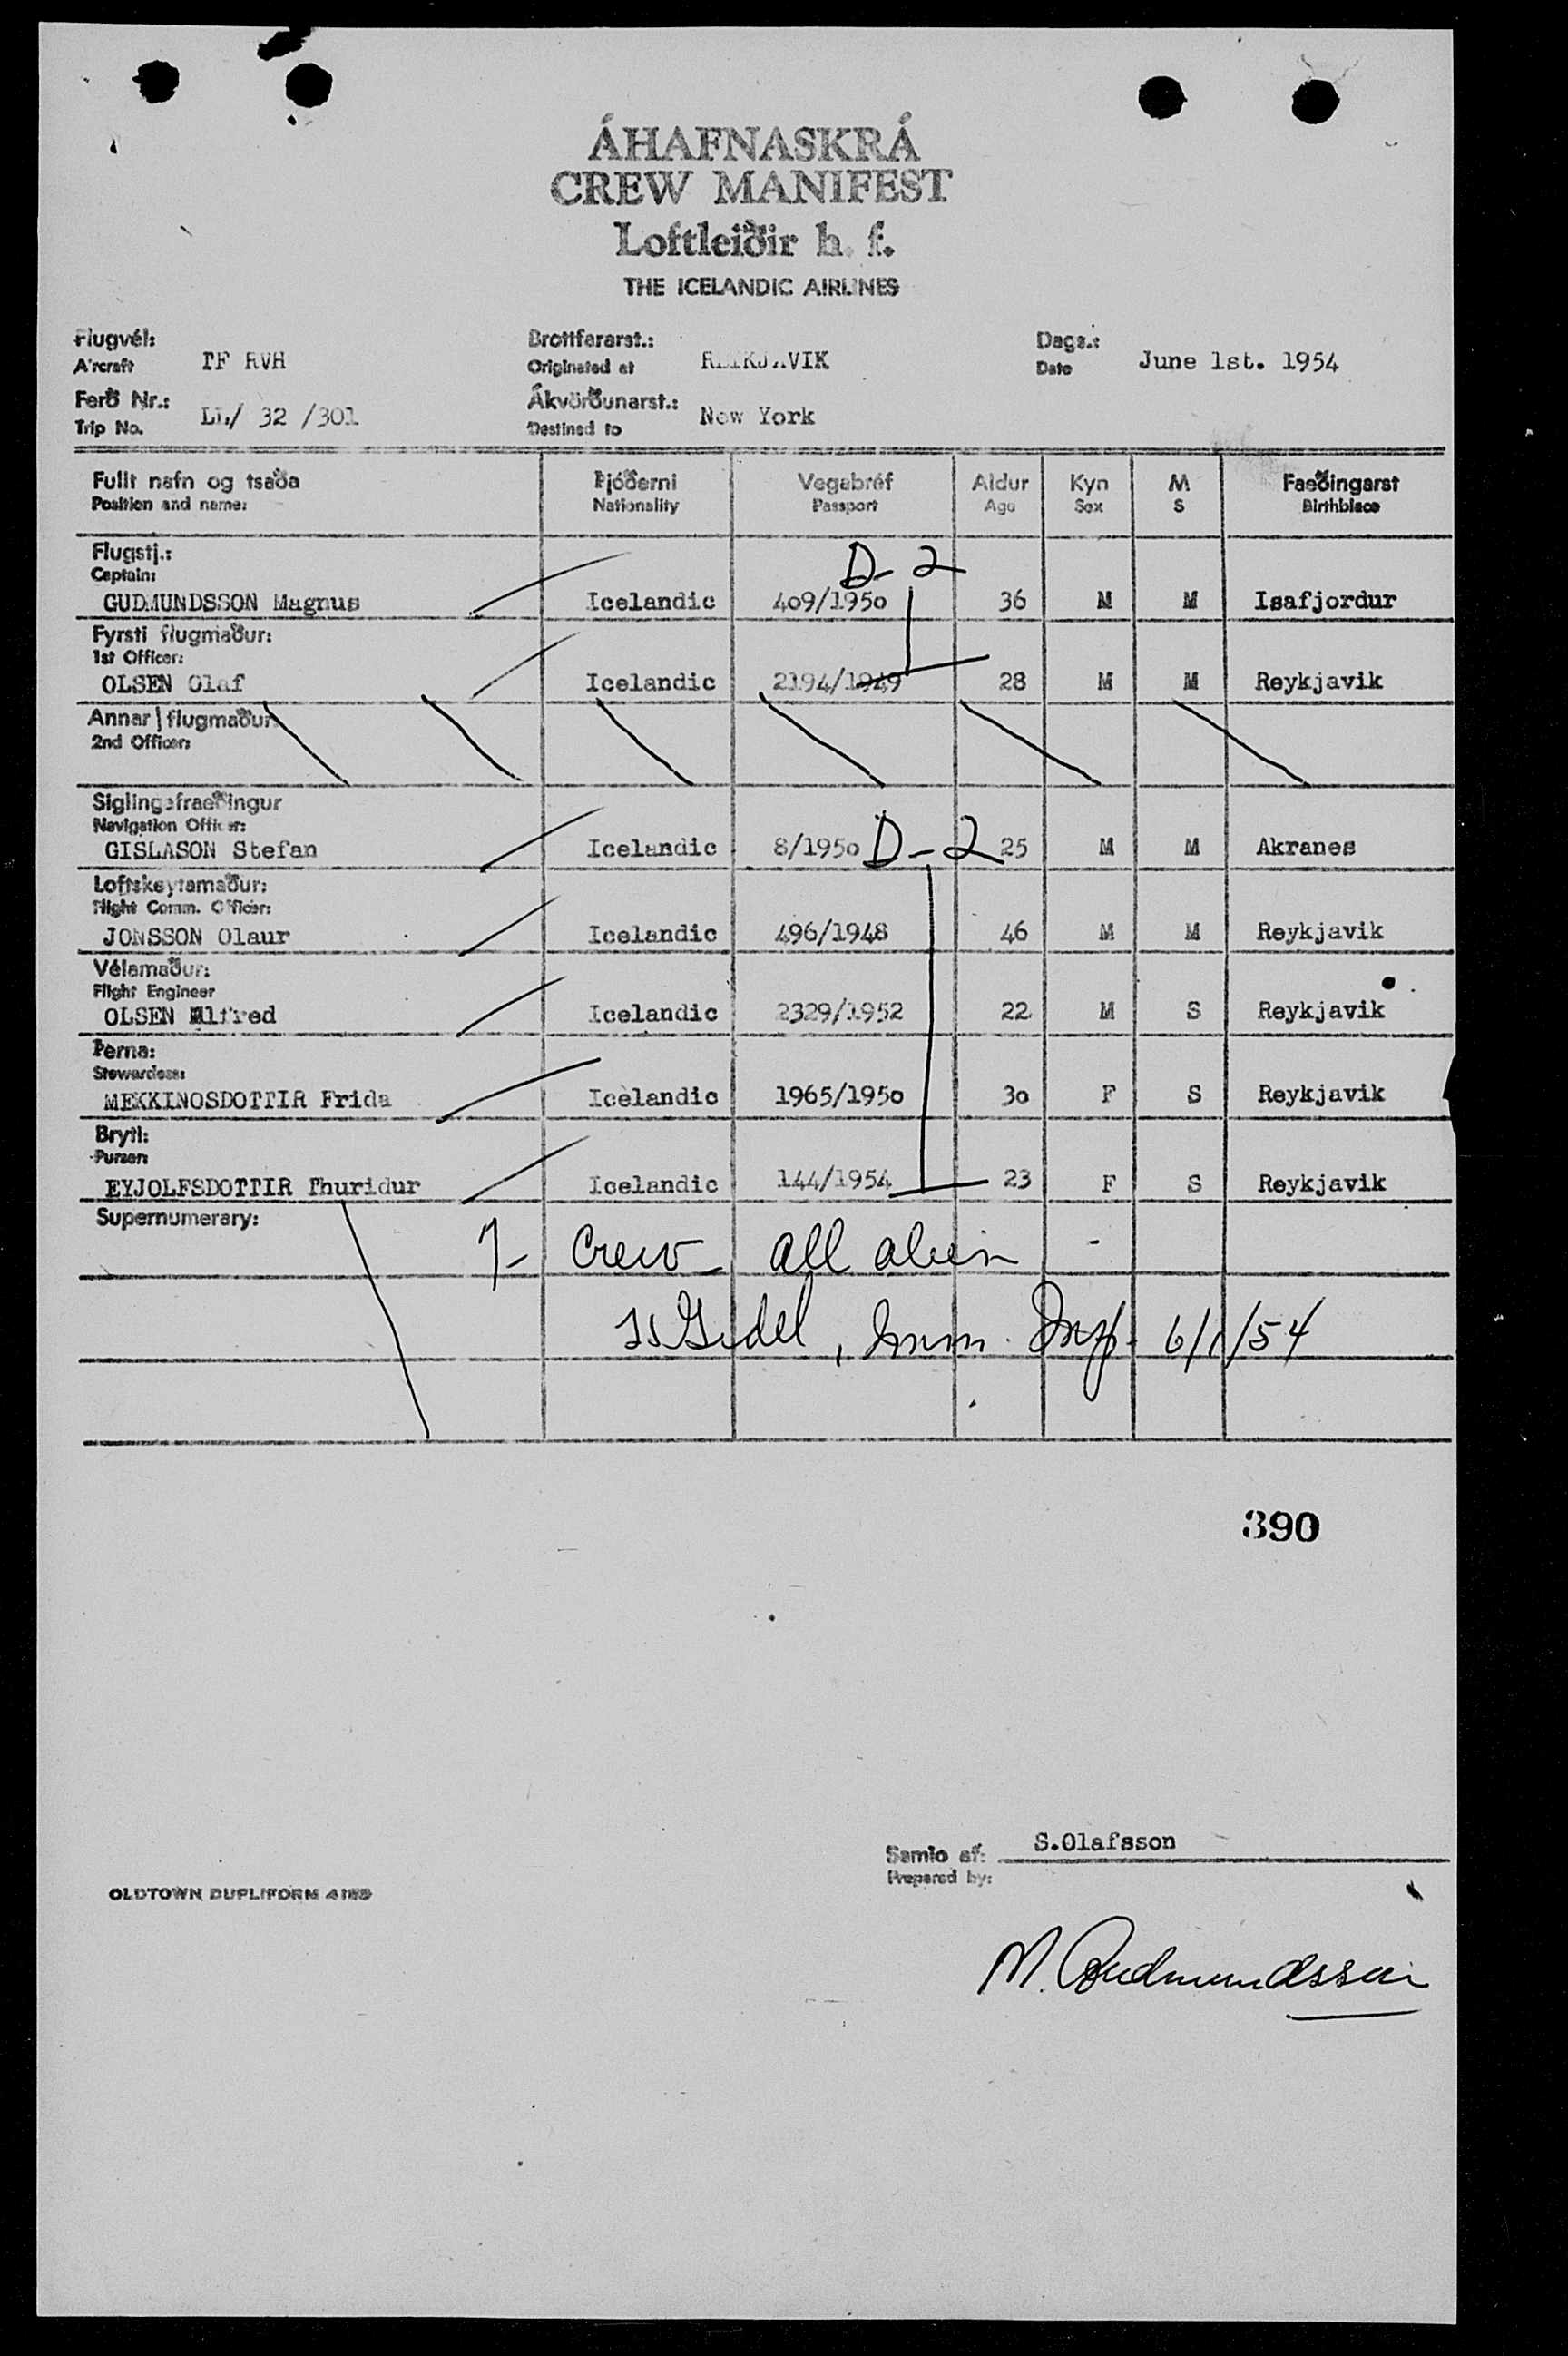 ÁHAFNASKRÁ
CREW MANIFEST
Loftleiðir h. f.
THE ICELANDIC AIRLINES
Flugvél: Brottfararst.: Dags.:
Aircraft TF RVH Originated at REYKJAVIK Date June 1st. 1954
Ferð Nr.: LL/ 32 /301 Ákvörðunarst.: New York
Trip No. Destined to
Fullt nafn og tsaða Þjóðerni Vegabréf Aldur Kyn M Faeðingarst
Position and name: Nationality Passport Age Sex S Birthplace
Flugstj.: D-2
Captain:
GUDMUNDSSON Magnus Icelandic 409/1950 36 M M Isafjordur
Fyrsti flugmaður:
1st Officer:
OLSEN Olaf Icelandic 2194/1949 28 M M Reykjavik
Annar flugmaður:
2nd Officer:
Siglingafraeðingur
Navigation Officer:
GISLASON Stefan Icelandic 8/1950 D-2 25 M M Akranes
Loftskeytamaður:
Flight Comm. Officer:
JONSSON Olaur Icelandic 496/1948 46 M M Reykjavik
Vélamaður:
Flight Engineer
OLSEN Alfred Icelandic 2329/1952 22 M S Reykjavik
Þerna:
Stewardess:
MEKKINOSDOTTIR Frida Icelandic 1965/1950 30 F S Reykjavik
Bryti:
Purser:
EYJOLFSDOTTIR Thuridur Icelandic 144/1954 23 F S Reykjavik
Supernumerary:
7- Crew - all alien -
Imm. Insp. 6/1/54
390
Samið af: S.Olafsson
Prepared by:
OLDTOWN DUPLIFORM
M. Gudmundsson